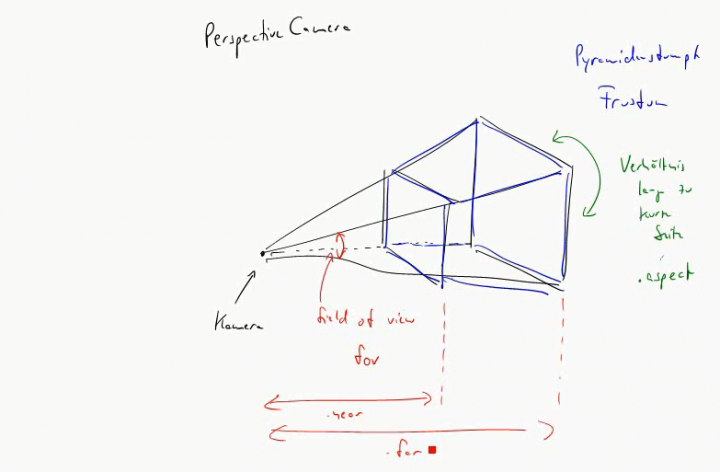 Perspective Camera
Pyramidenstumpf
Frustum
Verhältnis
lang zu
kurze
Seite
.aspect
Kamera
field of view
fov
.near
.far